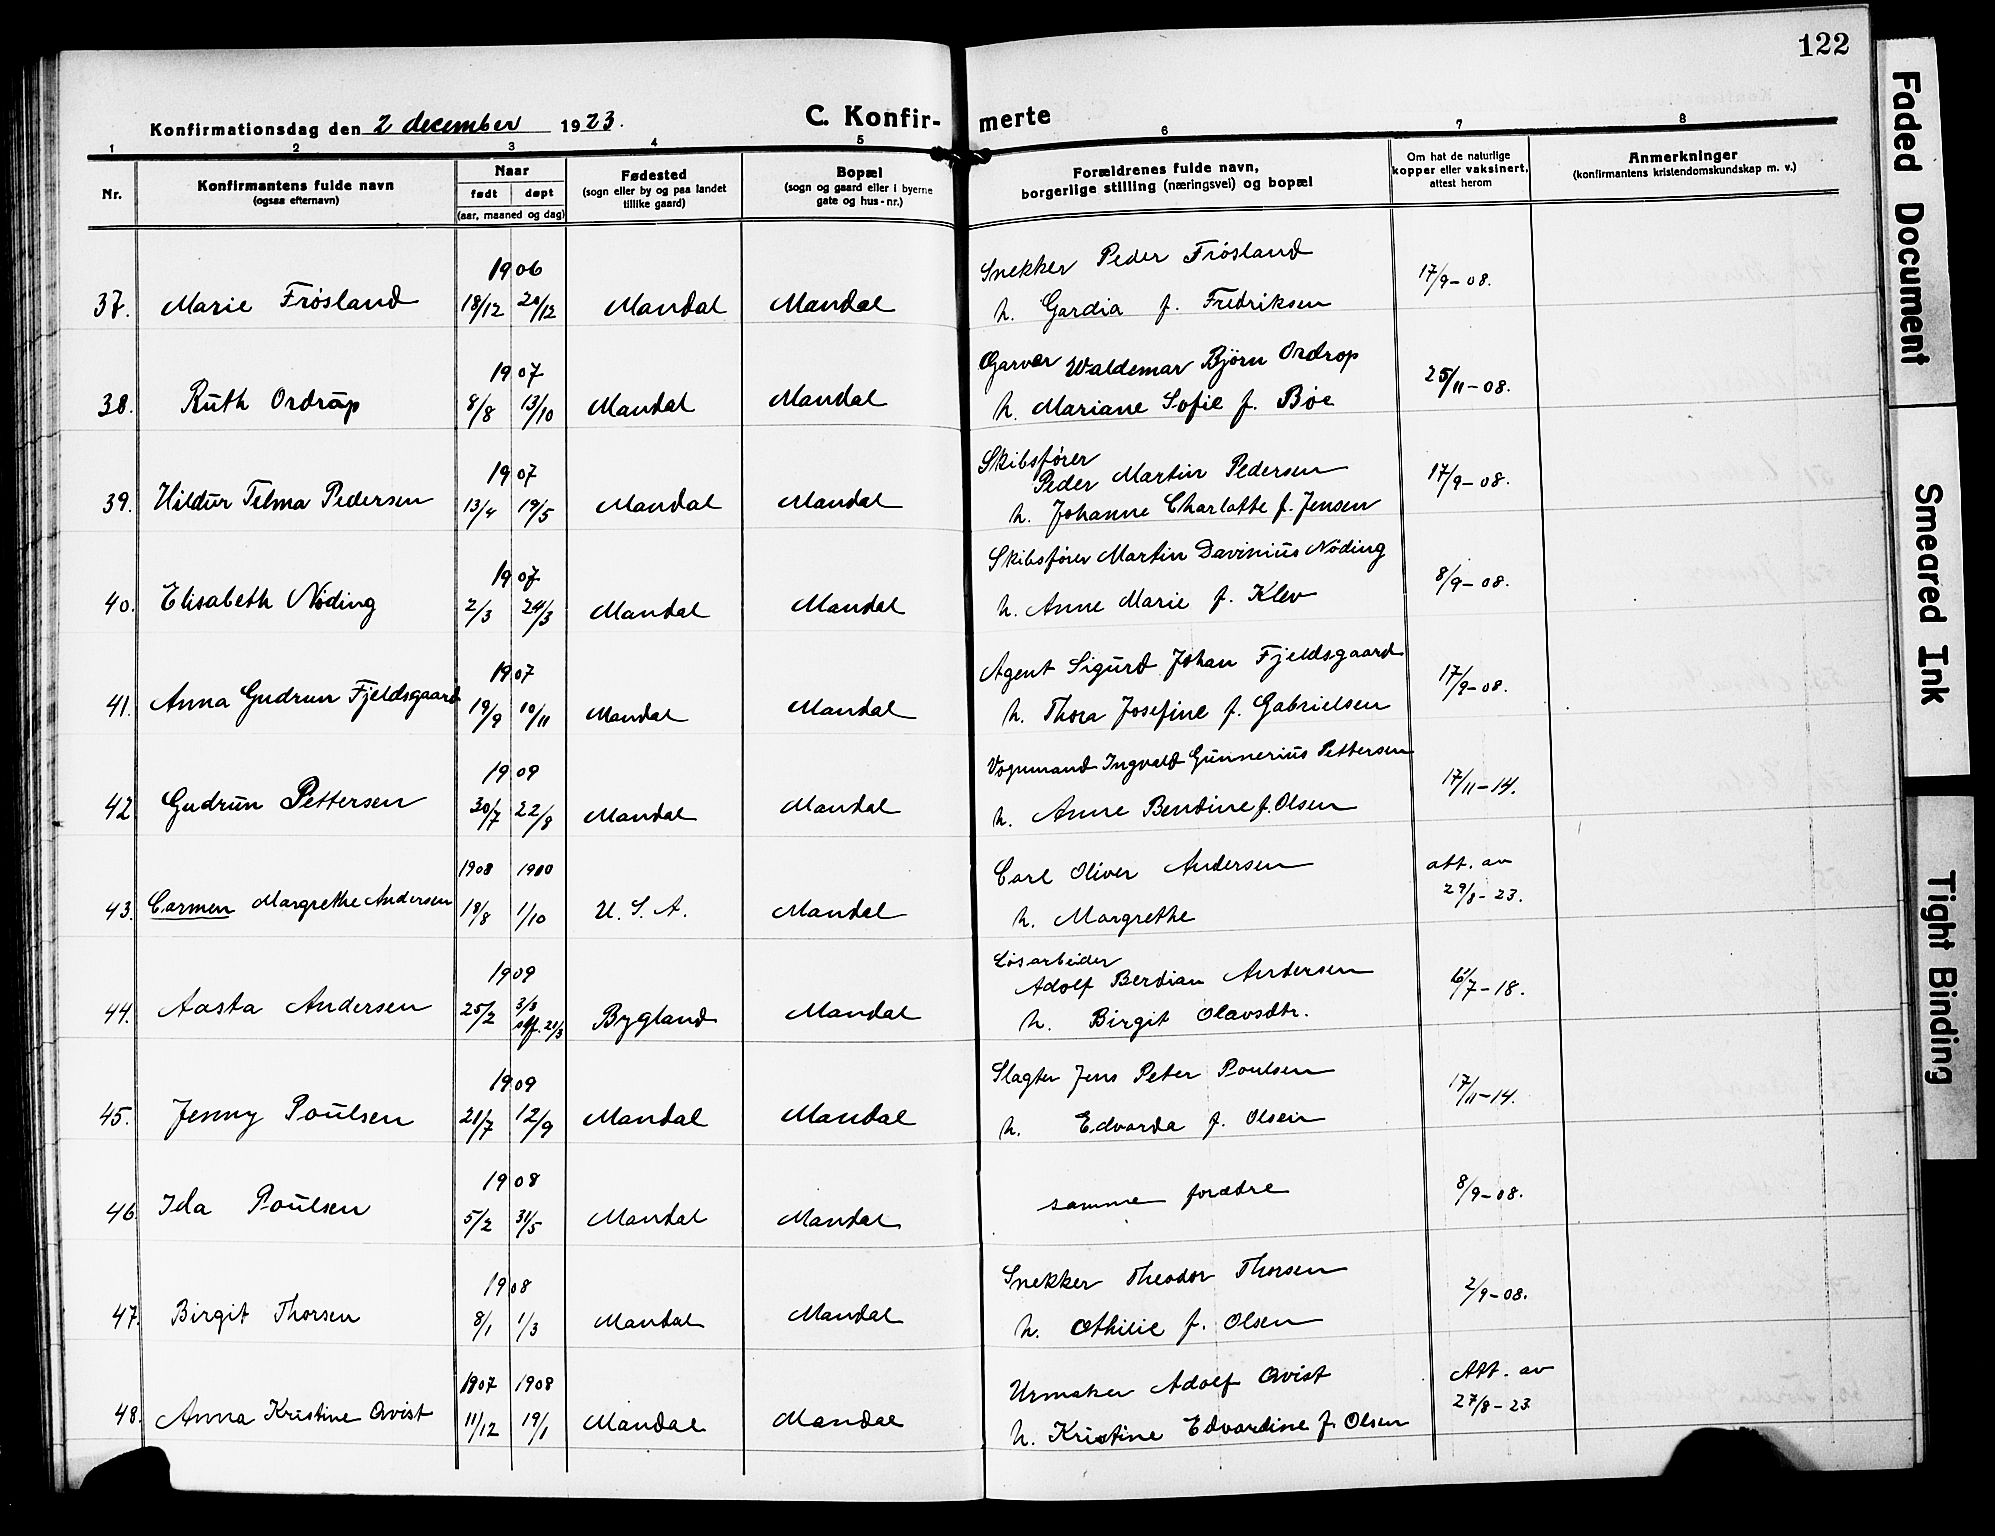 122
Konfirmationsdag den 2 december 1923.
C. Konfir- merte
1 2 3 4 5 6 7 8
Nr.
Konfirmantens fulde navn
(ogsaa efternavn)
Naar
født døpt
(aar, maaned og dag)
Fødested
(sogn eller by og paa landet
tillike gaard)
Bopæl
(sogn og gaard eller i byerne
gate og hus-nr.)
Forældrenes fulde navn,
borgerlige stilling (næringsvei) og bopæl
Om hat de naturlige
kopper eller vaksinert,
attest herom
Anmerkninger
(konfirmantens kristendomskundskap m. v.)
1906 Snekker Peder Frøsland
37. Marie Frøsland 18/12 20/12 Mandal Mandal h. Gardia f. Fredriksen 17/9-08.
1907 Garver Waldemar Bjørn Ordrop
38. Ruth Ordrup 8/8 13/10 Mandal Mandal h. Mariane Sofie f. Bøe 25/11-08.
1907 Skibsfører
Peder Martin Pedersen
39. Hildur Telma Pedersen 13/4 19/5 Mandal Mandal h. Johanne Charlotte f. Jensen 17/9-08.
1907 Skibsfører Martin Davinius Nøding
40. Elisabeth Nøding 2/3 24/3 Mandal Mandal h. Anne Marie f. Klev 8/9-08.
1907 Agent Sigurd Johan Fjeldsgaard
41. Anna Gudrun Fjeldsgaard 19/9 10/11 Mandal Mandal h. Thora Josefine f. Gabrielsen 17/9-08.
1909 Vognmand Ingvald Gunnerius Pettersen
42 Gudrun Pettersen 30/7 22/8 Mandal Mandal h. Anne Bendine f. Olsen 17/11-14.
1908 1900 Carl Oliver Andersen att. av
43. Carmen Margrethe Andersen 18/8 1/10 U. S. A. Mandal h. Margrethe 29/8-23.
1909 Løsarbeider
Adolf Berdian Andersen
44. Aasta Andersen 25/2 3/3 Bygland Mandal h. Birgit Olavsdtr. /7-18.
stf. 21/3
1909 Slagter Jens Peter Poulsen
45. Jenny Poulsen 21/7 12/9 Mandal Mandal h. Edvarda f. Olsen 17/11-14.
1908
46 Ida Poulsen 5/2 31/5 Mandal Mandal samme forædre 8/9-08.
1908 Snekker Theodor Thorsen
47. Birgit Thorsen 8/1 1/3 Mandal Mandal h. Othilie f. Olsen 2/9-08.
1907 1908 Urmaker Adolf Qvist Att. av
48. Anna Kristine Qvist 11/12 19/1 Mandal Mandal h. Kristine Edvardine f. Olsen 27/8-23
Faded Document
Smeared Ink
Tight Binding